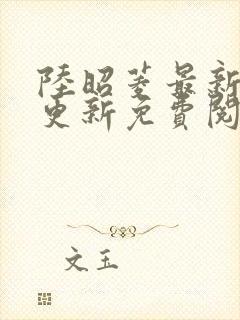 陸昭菱最新
更新免費閱
文玉